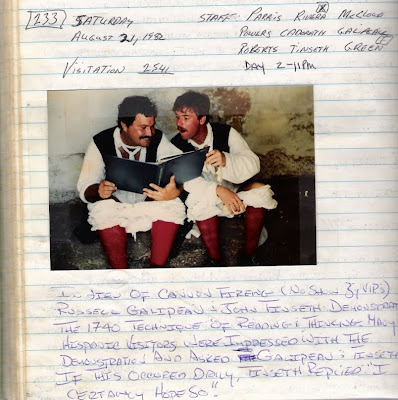 [233] SATURDAY STAFF PARRIS RIVERA McCLOUD
AUGUST 21, 1982 POWERS GALIPEAU
ROBERTS TINSETH GREEN
VISITATION 2541 DAY 2-11PM
IN VIEW OF CANNON FIREING (NO SHOW By VIP's)
RUSSELL GALIPEAU & JOHN TINSETH DEMONSTRATE
THE 1740 TECHNIQUE OF READING & THINKING MANY
HISPANIC VISITORS WERE IMPRESSED WITH THE
DEMONSTRATION AND ASKED GALIPEAU & TINSETH
IF THIS OCCURED DAILY, TINSETH REPLIED "I
CERTAINLY HOPE SO".